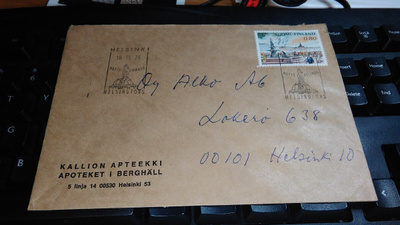 HELSINKI
HELSINGFORS
0,80
Oy Alko Ab
Lokero 638
00101 Helsinki 10
KALLION APTEEKKI
APOTEKET I BERGHÄLL
5 linja 14 00530 Helsinki 53